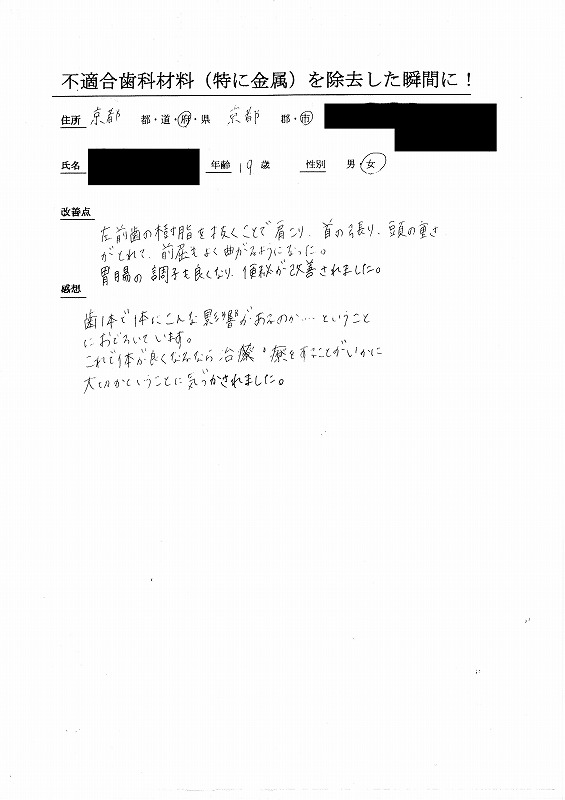 不適合歯科材料（特に金属）を除去した瞬間に！
住所 京都 都・道・府・県 京都 郡・市
氏名 年齢 19 歳 性別 男・女
改善点
左前歯の樹脂を抜くことで肩こり、首の張り、頭の重さ
がとれて、前屈もよく曲がるようになった。
胃腸の調子も良くなり、便秘が改善されました。
感想
歯1本で体にこんな影響があるのか…ということ
におどろいています。
これで体が良くなるなら治療 療をすることがいかに
大切かということに気づかされました。